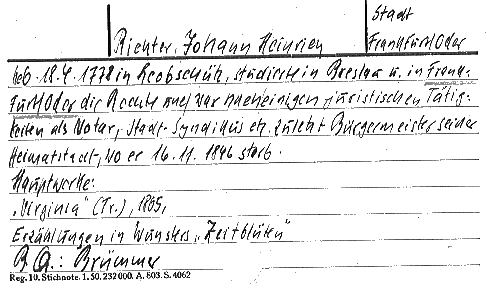 Richter, Johann Heinrich
Stadt
Frankfurt/Oder
geb. 18.4.1778 in Leobschütz, studierte in Breslau u. in Frank-
furt/Oder die Rechte und war nach einigen juristischen Tätig-
keiten als Notar, Stadt-Syndikus etc. zuletzt Bürgermeister seiner
Heimatstadt, wo er 16.11.1846 starb.
Hauptwerke:
"Virginia" (Tr.), 1805,
Erzählungen in Wunsters "Zeitblüten"
B Q.: Brümmer
Reg. 10. Stichnote. 1. 50. 232000. A. 803. S. 4062